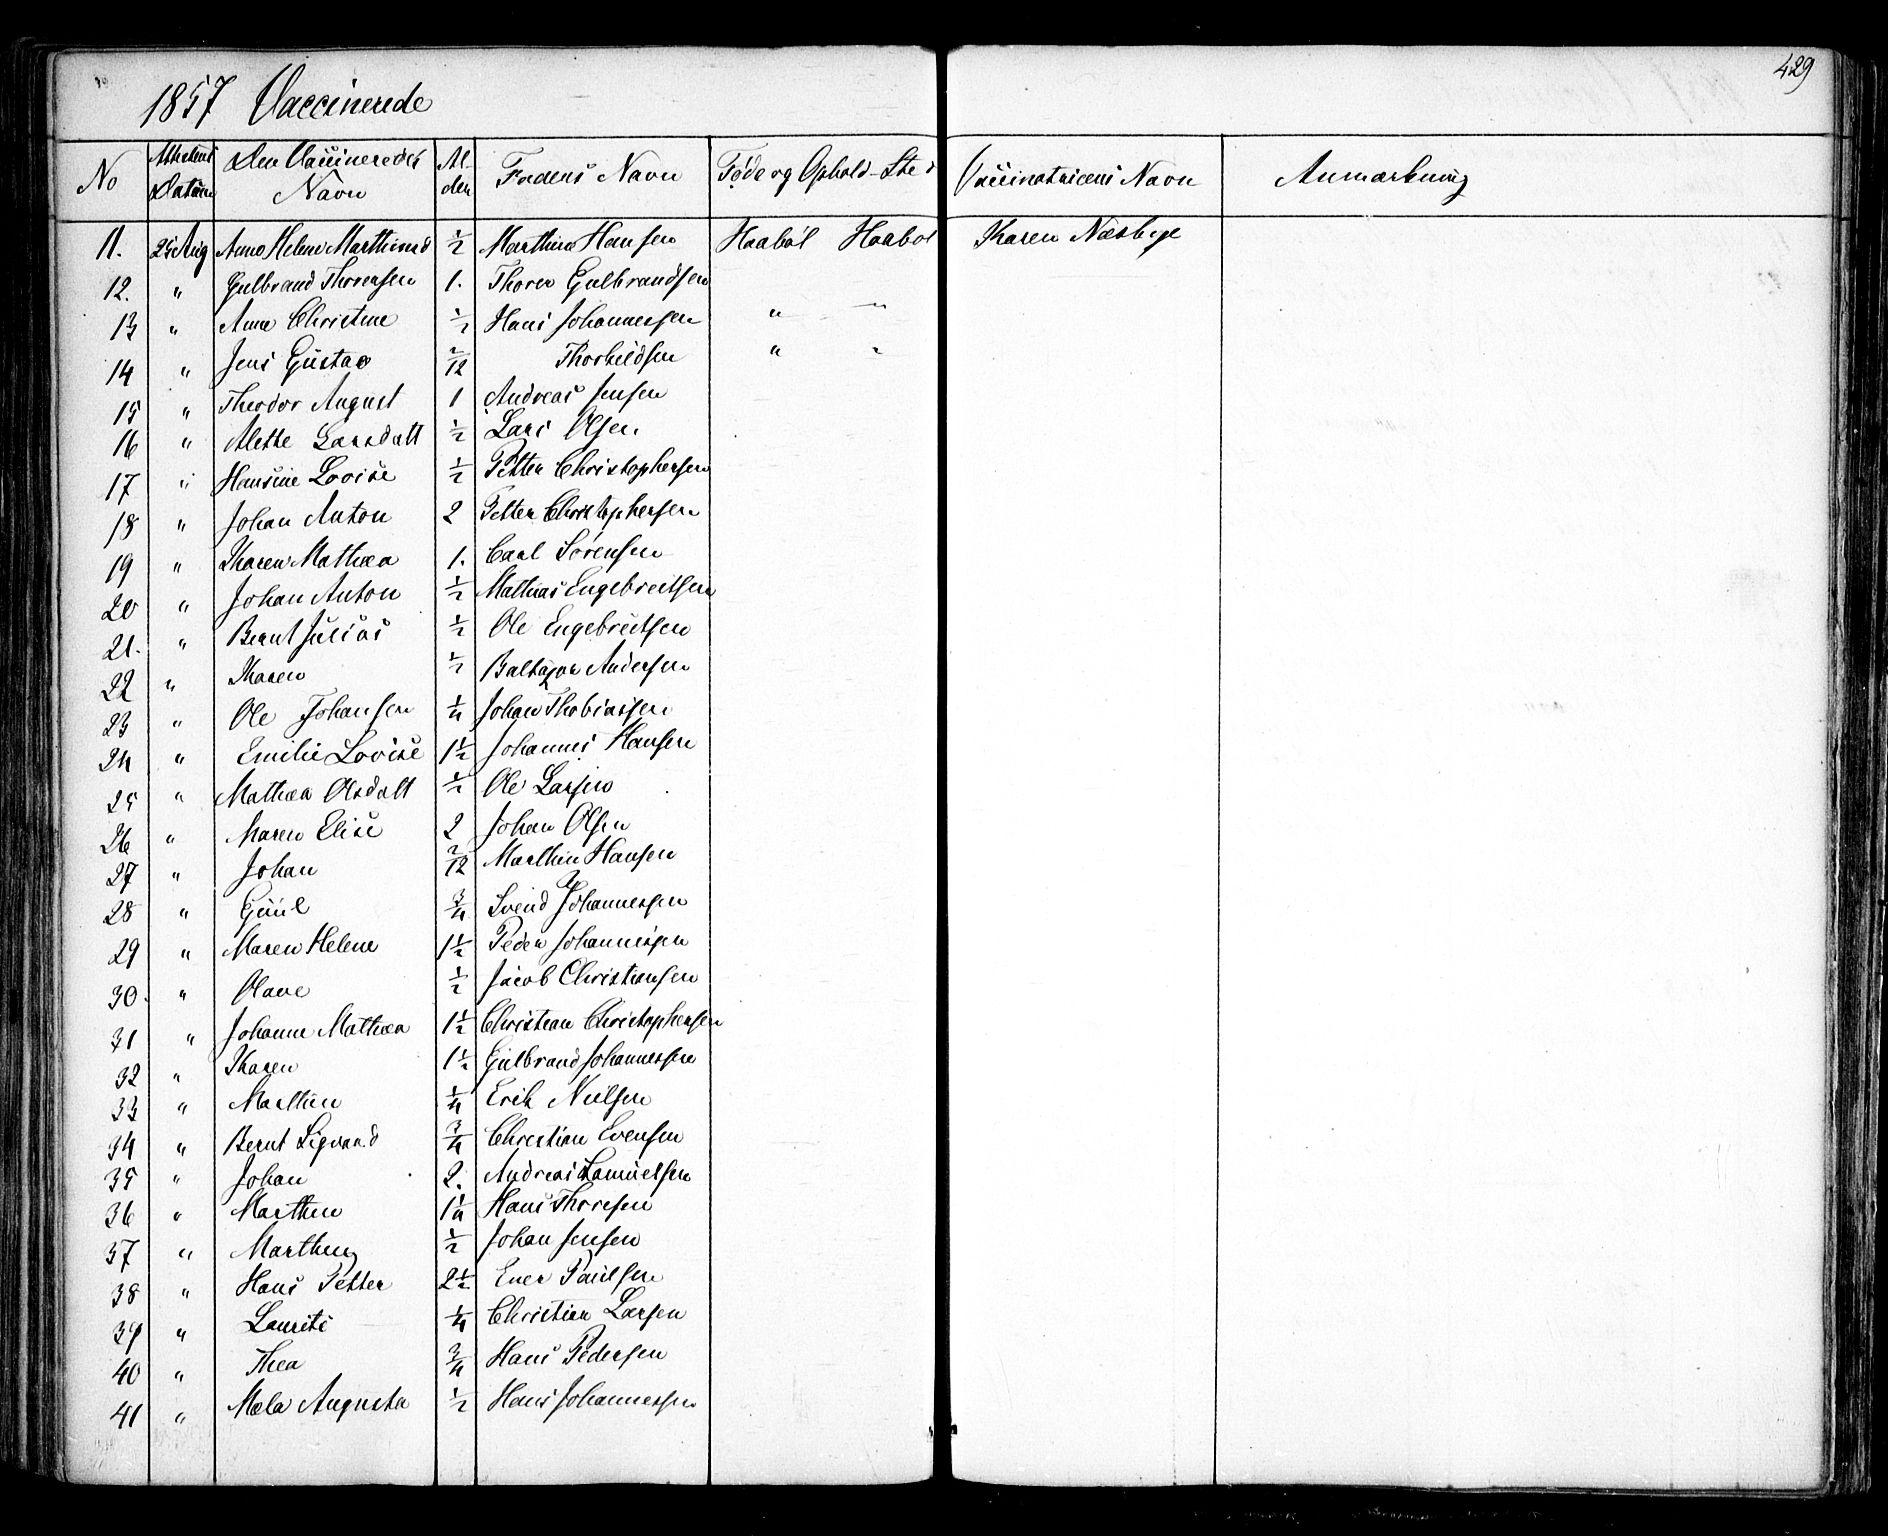 429
1857 Vaccinerede
No Attestens Datum Den Vaccineredes Navn Alder Faderens Navn Føde og Ophold-Sted Vaccinatricens Navn Anmærkning
11. 25 Aug Anne Helene Marthinsd ½ Marthin Hansen Haabøl Haabøl Karen Næsbye
12. " Gulbrand Thoresen 1. Thorer Gulbrandsen
13 " Anne Christine ½ Hans Johannessen " "
14 " Jens Gustav 2/12 Thorkildsen " "
15 " Theodor August 1 Andreas Jensen
16 " Alette Larsdatt ½ Lars Olsen
17 " Hansine Lovise ½ Petter Christophersen
18 " Johan Anton 2 Petter Christophersen
19 " Karen Mathea 1. Carl Sørensen
20 " Johan Anton ½ Mathias Engebretsen
21. " Bernt Julius ½ Ole Engebretsen
22 " Karen ½ Baltazar Andersen
23 " Ole Johansen ¼ Johan Thobiassen
24 " Emilie Lovise 1½ Johannes Hansen
25 " Mathea Olsdatt ½ Ole Larsen
26 " Maren Elise 2 Johan Olsen
27 " Johan 2/12 Marthin Hansen
28 " Guul ¾ Svend Johannessen
29 " Maren Helene 1½ Peder Johannessen
30. " Olave ½ Jacob Christiansen
31 " Johanne Mathea 1½ Christian Christophersen
32 " Karen 1½ Gulbrand Johannessen
33 " Marthin ¼ Erik Nielsen
34 " Bernt Sigvard ¾ Christian Evensen
35 " Johan 2. Andreas Samuelsen
36 " Marthin 1¼ Hans Thoresen
37 " Marthin ½ Johan Jensen
38 " Hans Petter 2½ Ener Paulsen
39 " Laurits ¼ Christian Larsen
40 " Thea ¾ Hans Pedersen
41 " Augusta ½ Hans Johannessen